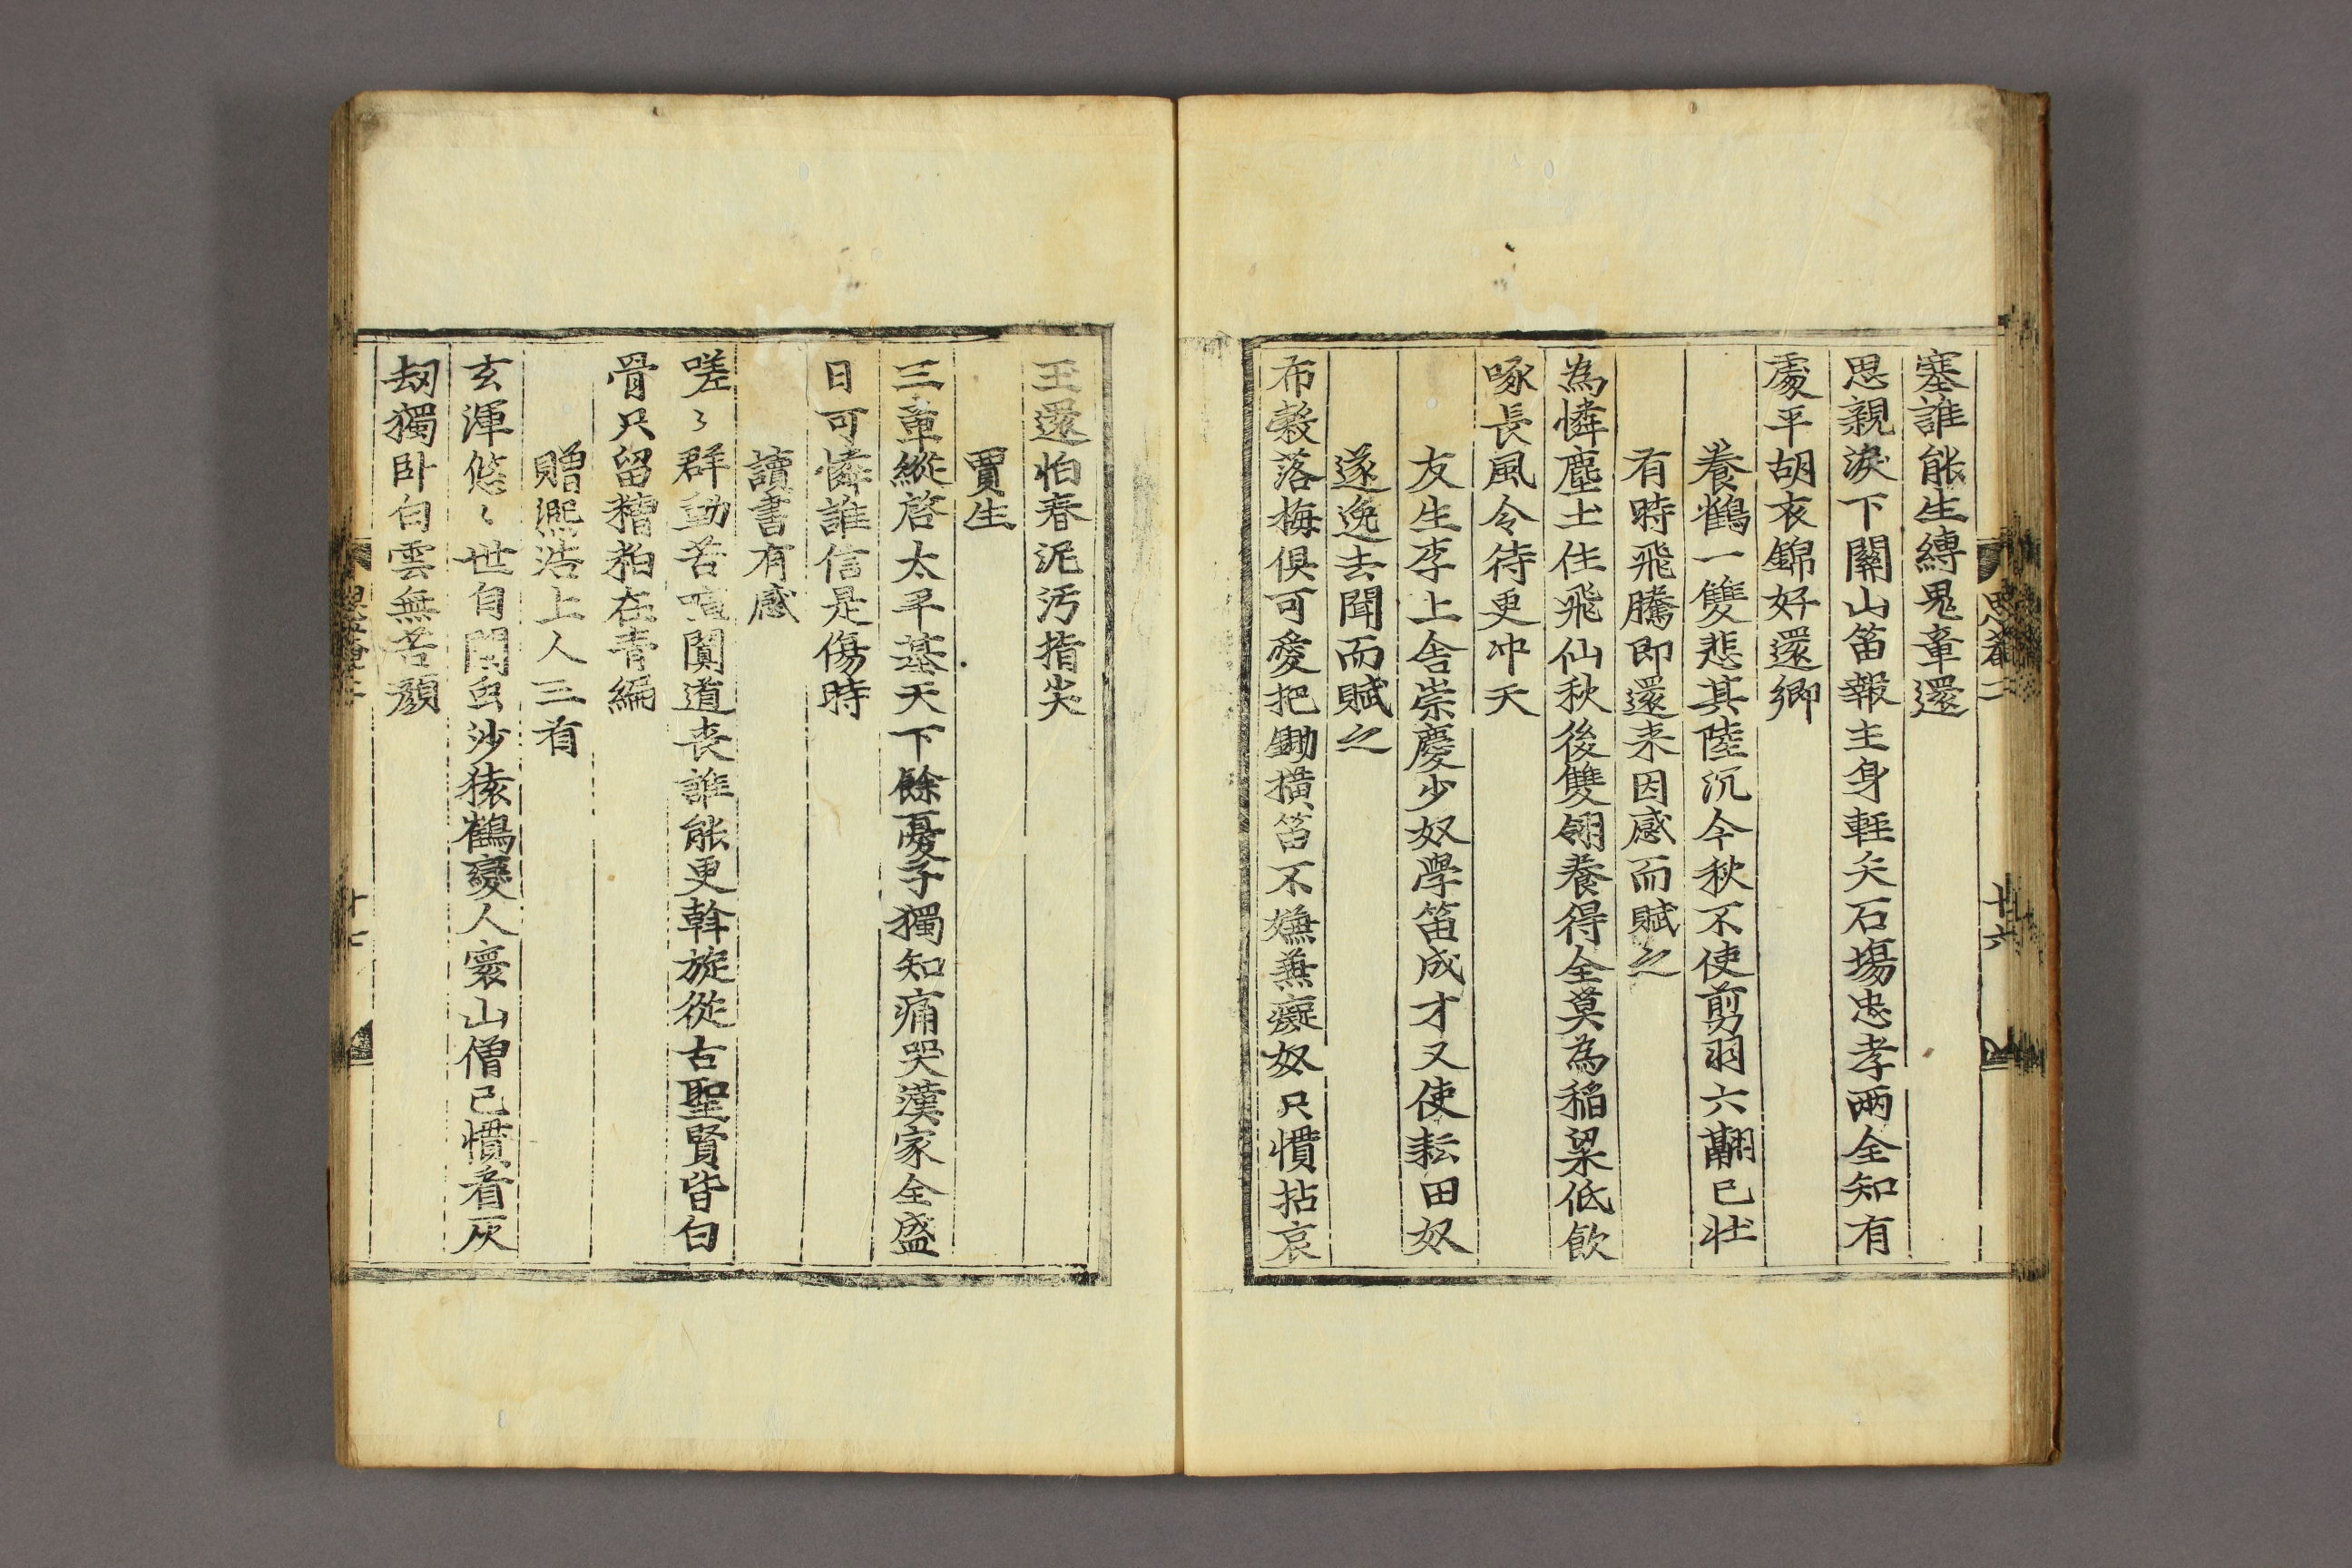 塞誰能生縛鬼章還
思親淚下關山笛報主身輕矢石場忠孝兩全知有
處平胡衣錦好還鄉
養鶴一雙悲其陸沉今秋不使剪羽六翮已壯
有時飛騰即還来因感而賦之
為憐塵土住飛仙秋後雙翎養得全莫為稻粱低飲
啄長風令待更冲天
友生李上舍崇慶少奴學笛成才又使耘田奴
遂逸去聞而賦之
布穀落梅俱可愛把鋤撗笛不嫌兼癡奴只慣拈哀
思菴二
十六
玉還怕春泥汚指尖
賈生
三章縱啓太平基天下餘憂子獨知痛哭漢家全盛
日可憐誰信是傷時
讀書有感
嗟〻群動苦喧闐道丧誰能更斡旋從古聖賢皆白
骨只留糟粕在青編
贈熙浩上人三首
玄渾悠〻世自閙虫沙猿鶴變人寰山僧已慣看灰
刼獨卧白雲無苦顔
十七